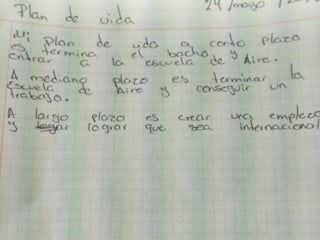 Plan de vida
24/mayo/
Mi plan de vida a corto plazo
es termina el bacho, y
entrar a la escuela de Aire.
A mediano plazo es terminar la
escuela de Aire y conseguir un
trabajo.
A largo plazo es crear una empleza
y lograr que sea internacional